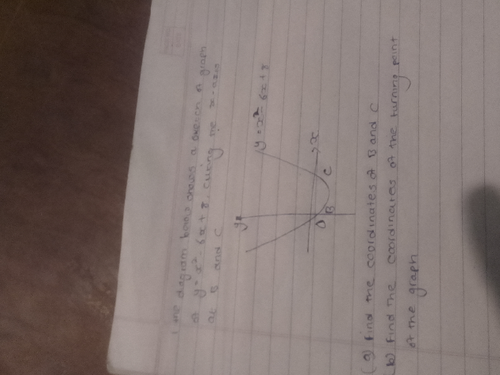 The diagram below shows a sketch of graph
of y = x² - 6x + 8, cutting the x-axis
at B and C
y
y = x² - 6x + 8
x
O
B
C
(a) Find the coordinates of B and C
(b) Find the coordinates of the turning point
of the graph